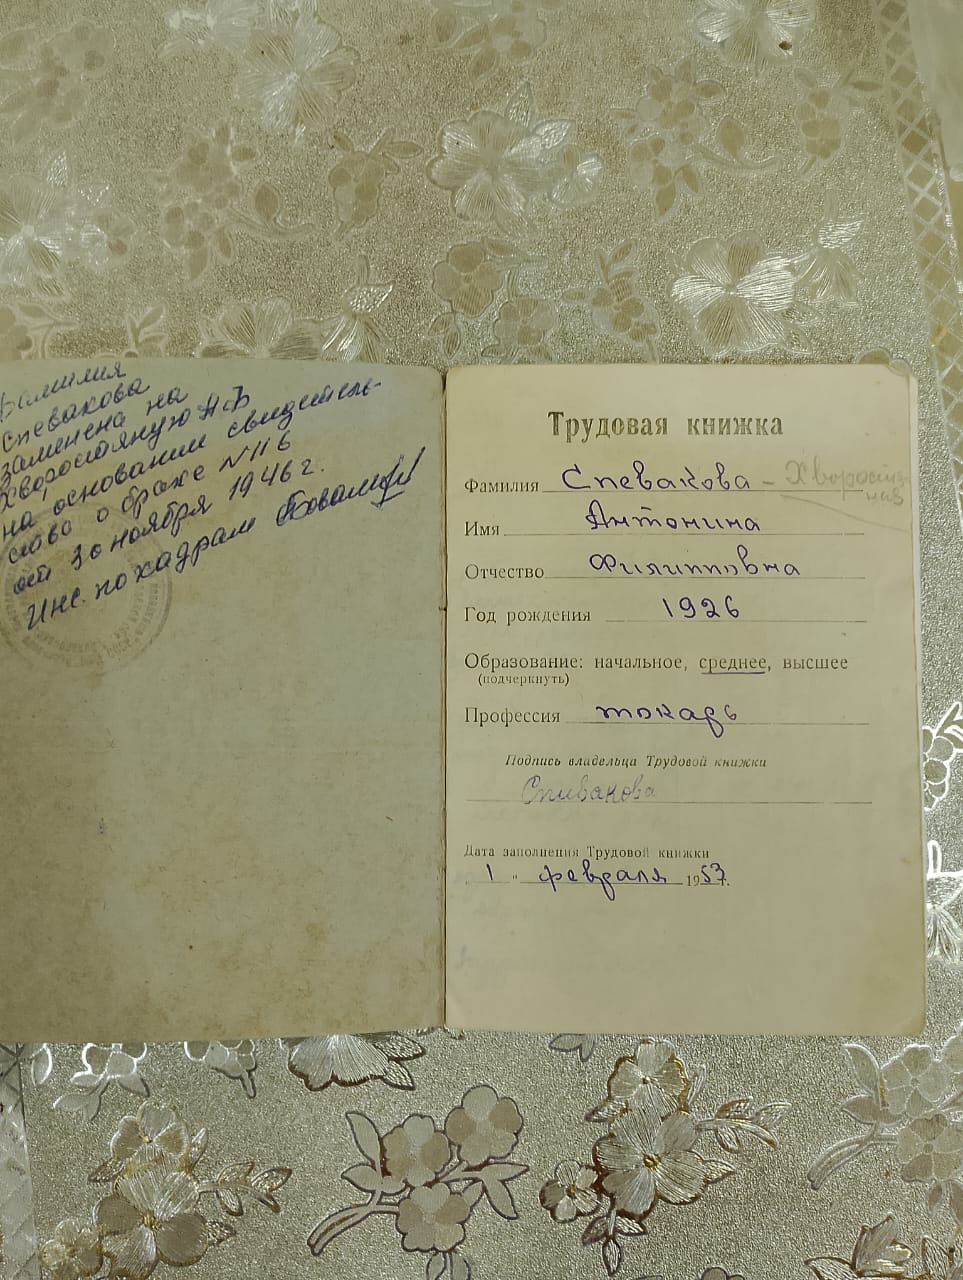 Фамилия
Спевакова
заменена на
Хворостяную А.Ф
на основании свидетель-
ства о браке N 116
от 30 ноября 1946 г.
Инс. по кадрам
Трудовая книжка
Фамилия Спевакова - Хворостя
ная
Имя Антонина
Отчество Филипповна
Год рождения 1926
Образование: начальное, среднее, высшее
(подчеркнуть)
Профессия токарь
Подпись владельца Трудовой книжки
Спивакова
Дата заполнения Трудовой книжки
„ 1 " февраля 1957 г.